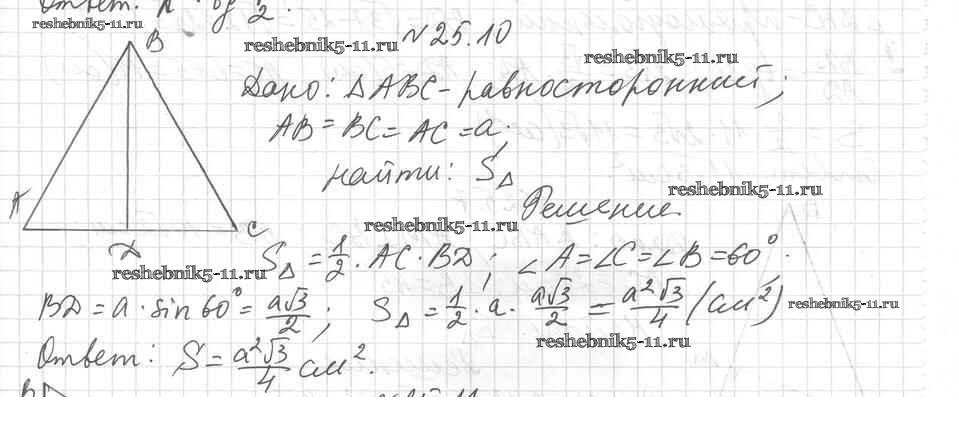 Ответ:
reshebnik5-11.ru
B reshebnik5-11.ru N 25.10 reshebnik5-11.ru
Дано: ΔABC - равносторонний;
AB = BC = AC = a;
найти: S△
A reshebnik5-11.ru
Решение
C reshebnik5-11.ru
D reshebnik5-11.ru S△ = 1/2 · AC · BD; ∠A = ∠C = ∠B = 60°.
BD = a · sin 60° = a√3/2; S△ = 1/2 · a · a√3/2 = a²√3/4 (см²) reshebnik5-11.ru
reshebnik5-11.ru
Ответ: S = a²√3/4 см².
B